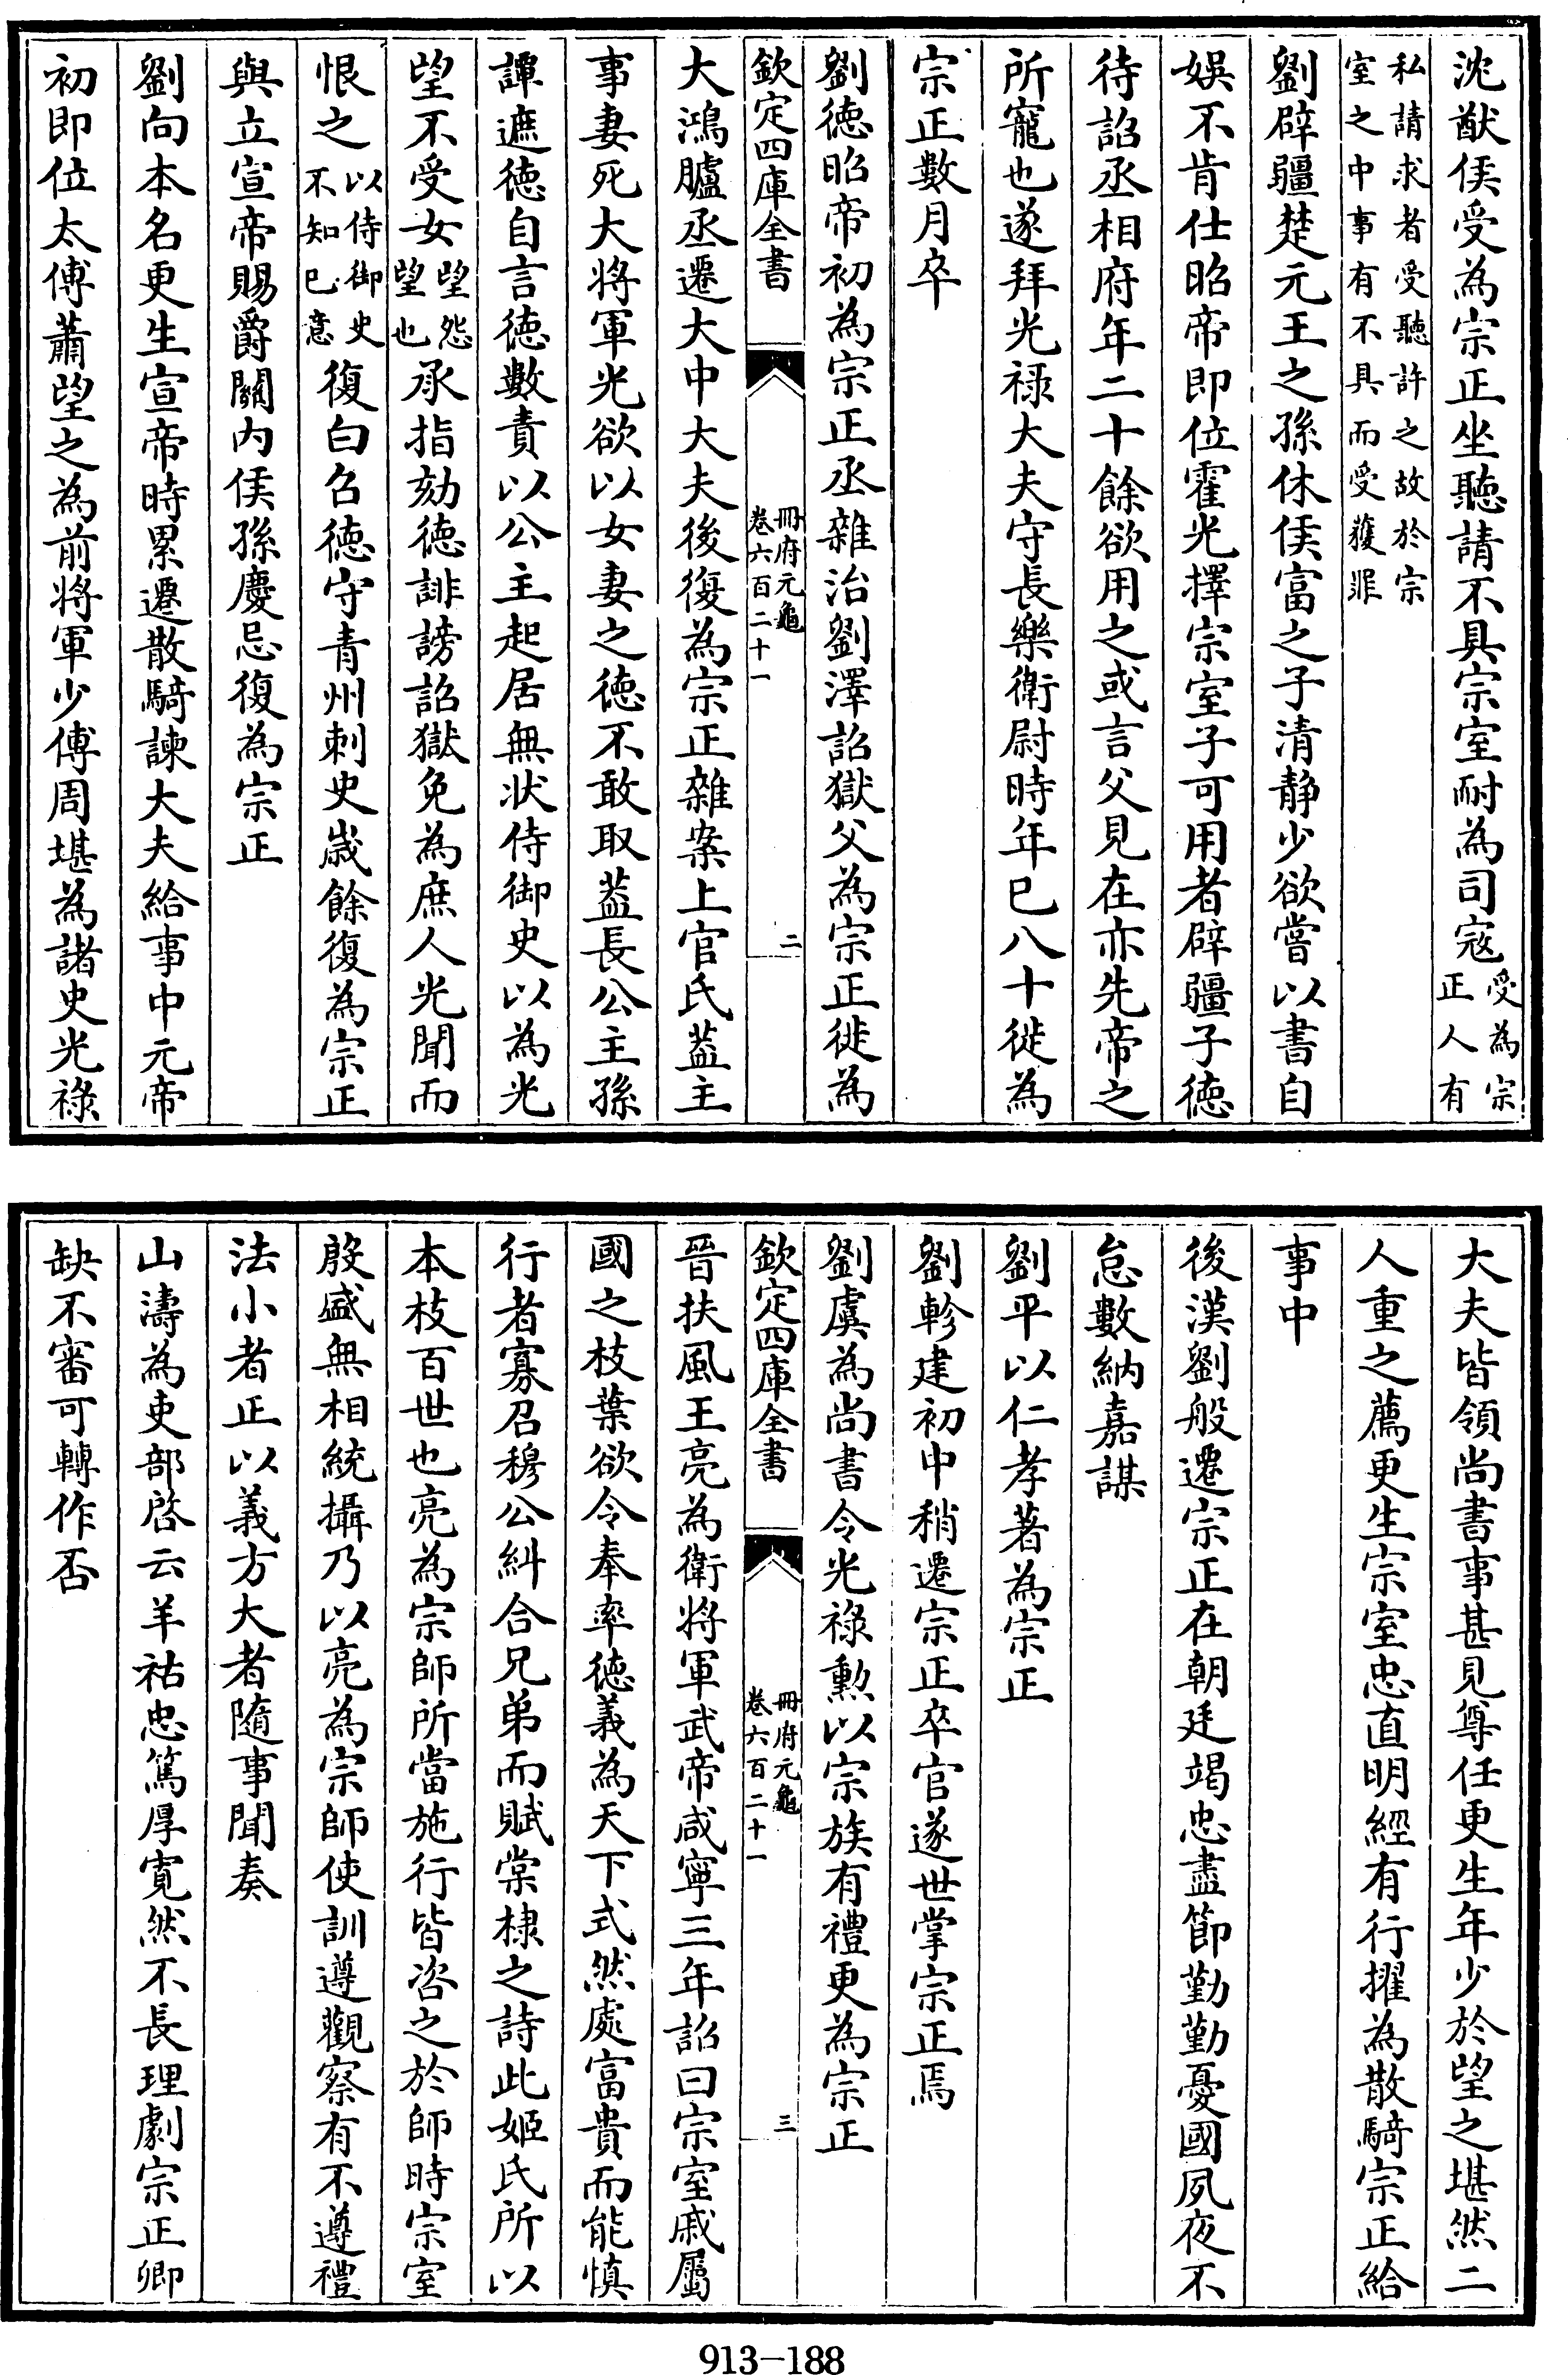 沈猷侯受為宗正坐聽請不具宗室耐為司寇受為宗正人有
私請求者受聽許之故於宗室之中事有不具而受獲罪
劉辟疆楚元王之孫休侯富之子清静少欲嘗以書自
娛不肯仕昭帝即位霍光擇宗室子可用者辟疆子徳
待詔丞相府年二十餘欲用之或言父見在亦先帝之
所寵也遂拜光禄大夫守長樂衛尉時年已八十徙為
宗正數月卒
劉徳昭帝初為宗正丞雜治劉澤詔獄父為宗正徙為
欽定四庫全書
冊府元龜
卷六百二十一
二
大鴻臚丞遷大中大夫後復為宗正雜案上官氏蓋主
事妻死大将軍光欲以女妻之徳不敢取蓋長公主孫
譚遮徳自言徳數責以公主起居無状侍御史以為光
望不受女望怨望也承指劾徳誹謗詔獄免為庶人光聞而
恨之以侍御史不知已意復白召徳守青州刺史歲餘復為宗正
與立宣帝賜爵關内侯孫慶忌復為宗正
劉向本名更生宣帝時累遷散騎諫大夫給事中元帝
初即位太傅蕭望之為前将軍少傅周堪為諸史光祿
大夫皆領尚書事甚見尊任更生年少於望之堪然二
人重之薦更生宗室忠直明經有行擢為散騎宗正給
事中
後漢劉般遷宗正在朝廷竭忠盡節勤勤憂國夙夜不
怠數納嘉謀
劉平以仁孝著為宗正
劉軫建初中稍遷宗正卒官遂世掌宗正焉
劉虞為尚書令光祿勲以宗族有禮更為宗正
欽定四庫全書
冊府元龜
卷六百二十一
三
晉扶風王亮為衛將軍武帝咸寧三年詔曰宗室戚屬
國之枝葉欲令奉率徳義為天下式然處富貴而能慎
行者寡召穆公糾合兄弟而賦棠棣之詩此姬氏所以
本枝百世也亮為宗師所當施行皆咨之於師時宗室
殷盛無相統攝乃以亮為宗師使訓遵觀察有不遵禮
法小者正以義方大者隨事聞奏
山濤為吏部啓云羊祜忠篤厚寛然不長理劇宗正卿
缺不審可轉作否
913-188